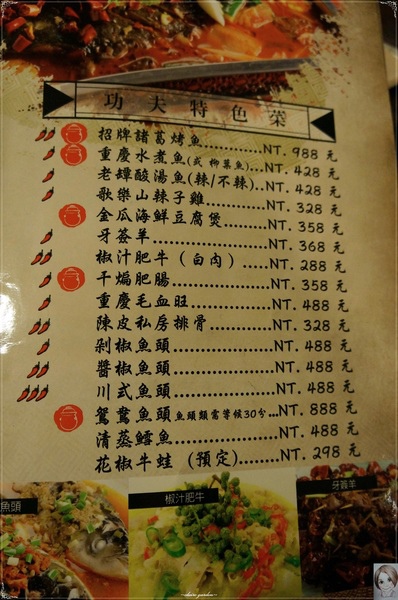 功夫特色菜
招牌諸葛烤魚............NT. 988 元
重慶水煮魚(或 柳葉魚)...NT. 428 元
老罈酸湯魚(辣/不辣)...NT. 428 元
歌樂山辣子雞............NT. 328 元
金瓜海鮮豆腐煲.........NT. 358 元
牙簽羊..................NT. 368 元
椒汁肥牛(白肉).....NT. 288 元
干煸肥腸................NT. 358 元
重慶毛血旺..............NT. 488 元
陳皮私房排骨............NT. 328 元
剁椒魚頭................NT. 488 元
醬椒魚頭................NT. 488 元
川式魚頭................NT. 488 元
鴛鴦魚頭 魚頭類需等候30分...NT. 888 元
清蒸鱈魚................NT. 488 元
花椒牛蛙(預定)........NT. 298 元
魚頭
椒汁肥牛
牙簽羊